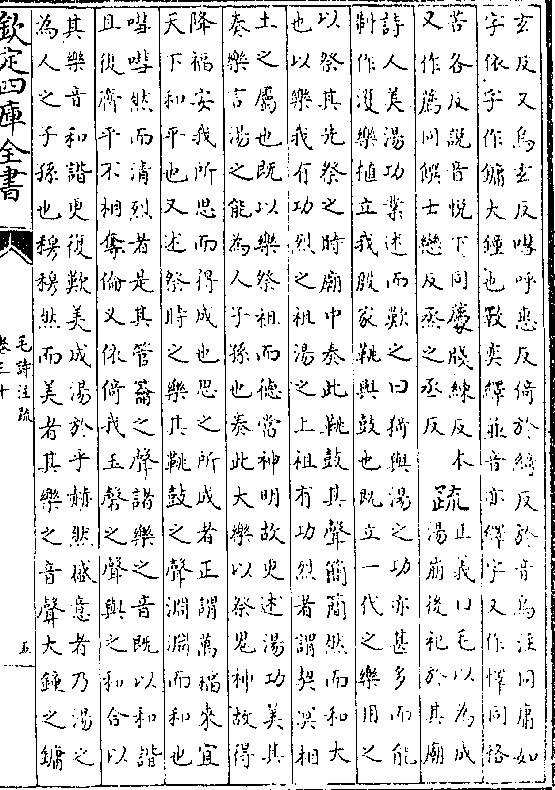 玄反又烏玄反嘒呼惠反倚於綺反於音烏注同庸如
字依字作鏞大鐘也斁奕繹並音亦繹字又作懌同恪
苦各反說音悅下同薦牋練反本
又作廌同饌士戀反烝之丞反
疏
正義曰毛以為成
湯崩後祀於其廟
詩人美湯功業述而歎之曰猗與湯之功亦甚多而能
制作濩樂植立我殷家鞉與鼓也既立一代之樂用之
以祭其先祭之時廟中奏此鞉鼓其聲簡簡然而和大
也以樂我有功烈之祖湯之上祖有功烈者謂契冥相
土之屬也既以樂祭祖而德當神明故更述湯功美其
奏樂言湯之能為人子孫也奏此大樂以祭鬼神故得
降福安我所思而得成也思之所成者正謂萬福來宜
天下和平也又述祭時之樂其鞉鼓之聲淵淵而和也
嘒嘒然而清烈者是其管籥之聲諸樂之音既以和諧
且復濟平不相奪倫又依倚我玉磬之聲與之和合以
其樂音和諧更復歎美成湯於乎赫然盛意者乃湯之
為人之子孫也穆穆然而美者其樂之音聲大鐘之鏞
欽定四庫全書
毛詩注疏
卷三十
五